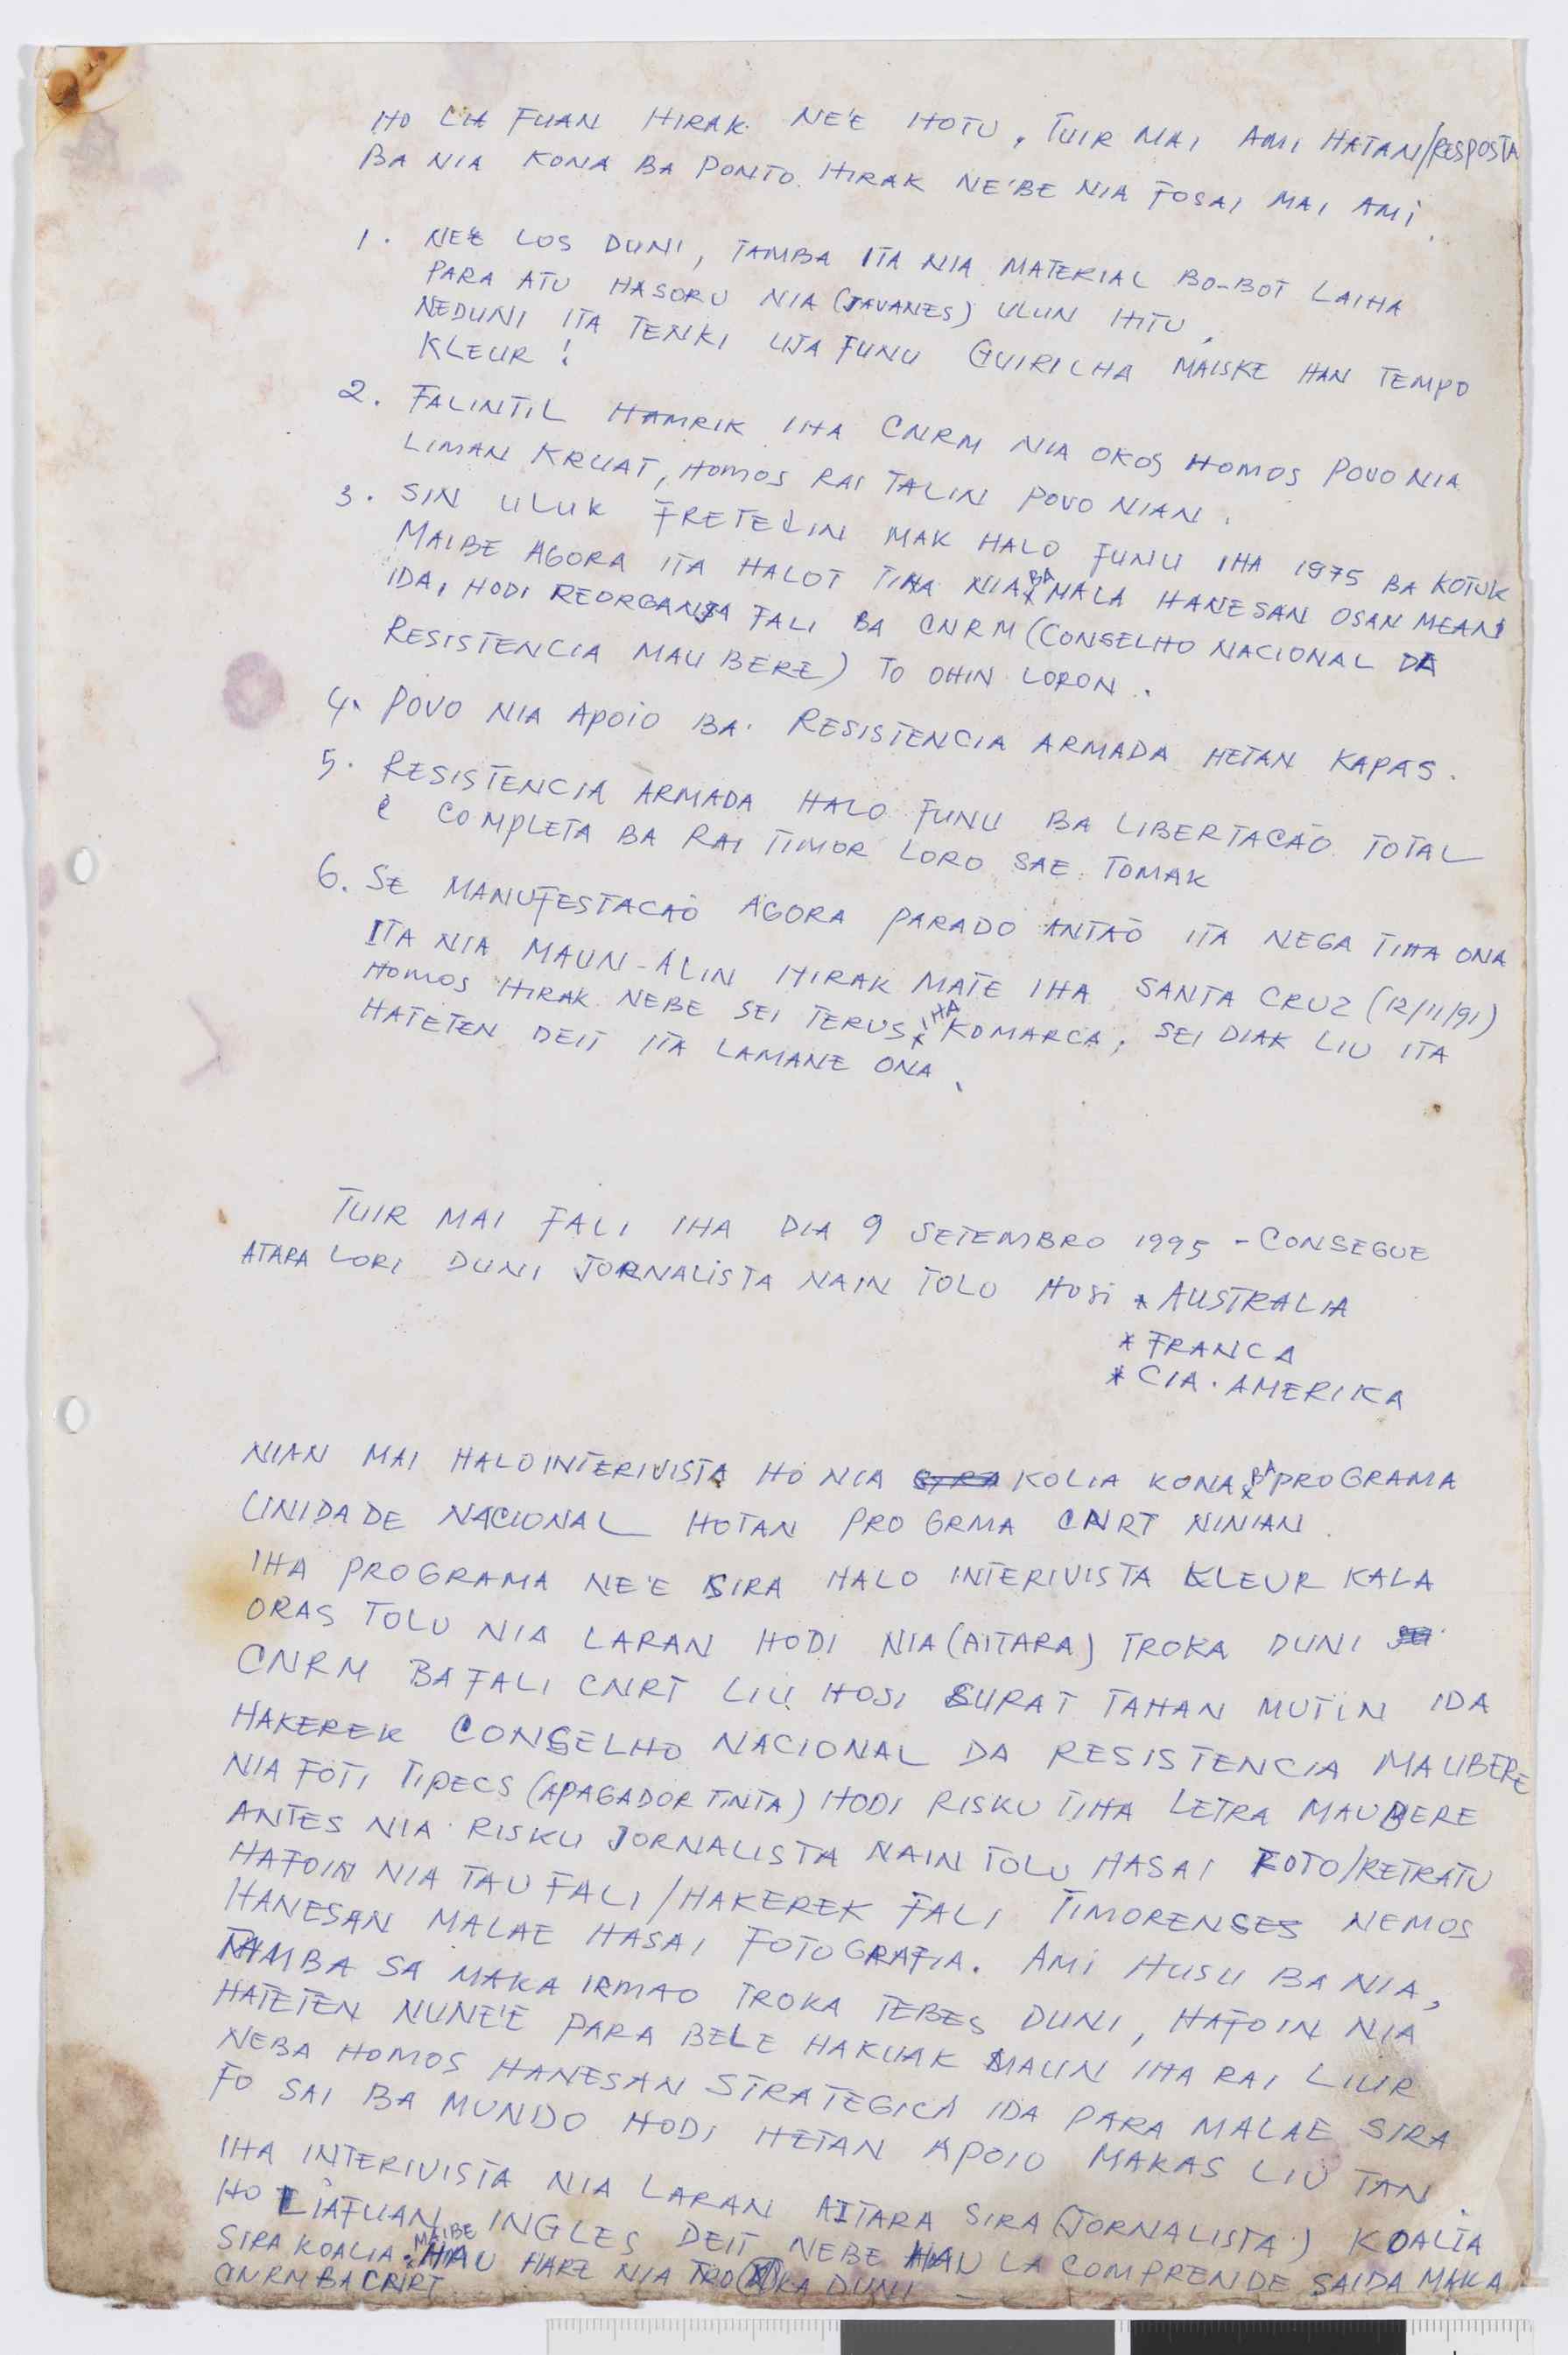 HO LIA FUAN HIRAK NE'E HOTU, TUIR MAI AMI HATAN/RESPOSTA
BA NIA KONA BA PONTO HIRAK NE'BE NIA FOSAI MAI AMI.
1. NE'E LOS DUNI, TAMBA ITA NIA MATERIAL BO-BOT LAIHA
PARA ATU HASORU NIA (JAVANES) ULUN HITU,
NEDUNI ITA TENKI UJA FUNU GUIRILHA MAISKE HAN TEMPO
KLEUR!
2. FALINTIL HAMRIK IHA CNRM NIA OKOS HOMOS POVO NIA
LIMAN KRUAT, HOMOS RAI TALIN POVO NIAN.
3. SIN ULUK FRETELIN MAK HALO FUNU IHA 1975 BA KOTUK
MAIBE AGORA ITA HALOT TIHA NIA BA MALA HANESAN OSAN MEAN
IDA, HODI REORGANJA FALI BA CNRM (CONSELHO NACIONAL DA
RESISTENCIA MAUBERE) TO OHIN LORON.
4. POVO NIA APOIO BA RESISTENCIA ARMADA HETAN KAPAS.
5. RESISTENCIA ARMADA HALO FUNU BA LIBERTACÃO TOTAL
E COMPLETA BA RAI TIMOR LORO SAE TOMAK
6. SE MANUFESTACAÕ AGORA PARADO ANTAÕ ITA NEGA TIHA ONA
ITA NIA MAUN-ALIN HIRAK MATE IHA SANTA CRUZ (12/11/91)
HOMOS HIRAK NEBE SEI TERUS IHA KOMARCA, SEI DIAK LIU ITA
HATETEN DEIT ITA LAMANE ONA.
TUIR MAI FALI IHA DIA 9 SETEMBRO 1995 - CONSEGUE
ATARA LORI DUNI JORNALISTA NAIN TOLO HOSI * AUSTRALIA
* FRANCA
* CIA. AMERIKA
NIAN MAI HALO INTERIVISTA HO NIA KOLIA KONA BA PROGRAMA
UNIDADE NACIONAL HOTAN PROGRMA CNRT NINIAN.
IHA PROGRAMA NE'E SIRA HALO INTERIVISTA KLEUR KALA
ORAS TOLU NIA LARAN HODI NIA (AITARA) TROKA DUNI
CNRM BA FALI CNRT LIU HOSI SURAT TAHAN MUTIN IDA
HAKEREK CONSELHO NACIONAL DA RESISTENCIA MAUBERE
NIA FOTI TIPECS (APAGADOR TINTA) HODI RISKU TIHA LETRA MAUBERE
ANTES NIA RISKU JORNALISTA NAIN TOLU HASAI FOTO/RETRATU
HAFOIN NIA TAU FALI/HAKEREK FALI TIMORENSES NEMOS
HANESAN MALAE HASAI FOTOGRAFIA. AMI HUSU BA NIA,
TAMBA SA MAKA IRMAO TROKA TEBES DUNI, HAFOIN NIA
HATETEN NUNE'E PARA BELE HAKUAK MAUN IHA RAI LIUR
NEBA HOMOS HANESAN STRATEGICA IDA PARA MALAE SIRA
FO SAI BA MUNDO HODI HETAN APOIO MAKAS LIU TAN.
IHA INTERIVISTA NIA LARAN AITARA SIRA (JORNALISTA) KOALIA
HO LIAFUAN INGLES DEIT NEBE HAU LA COMPRENDE SAIDA MAKA
SIRA KOALIA. MAIBE HAU HARE NIA TROKA DUNI
CNRM BA CNRT